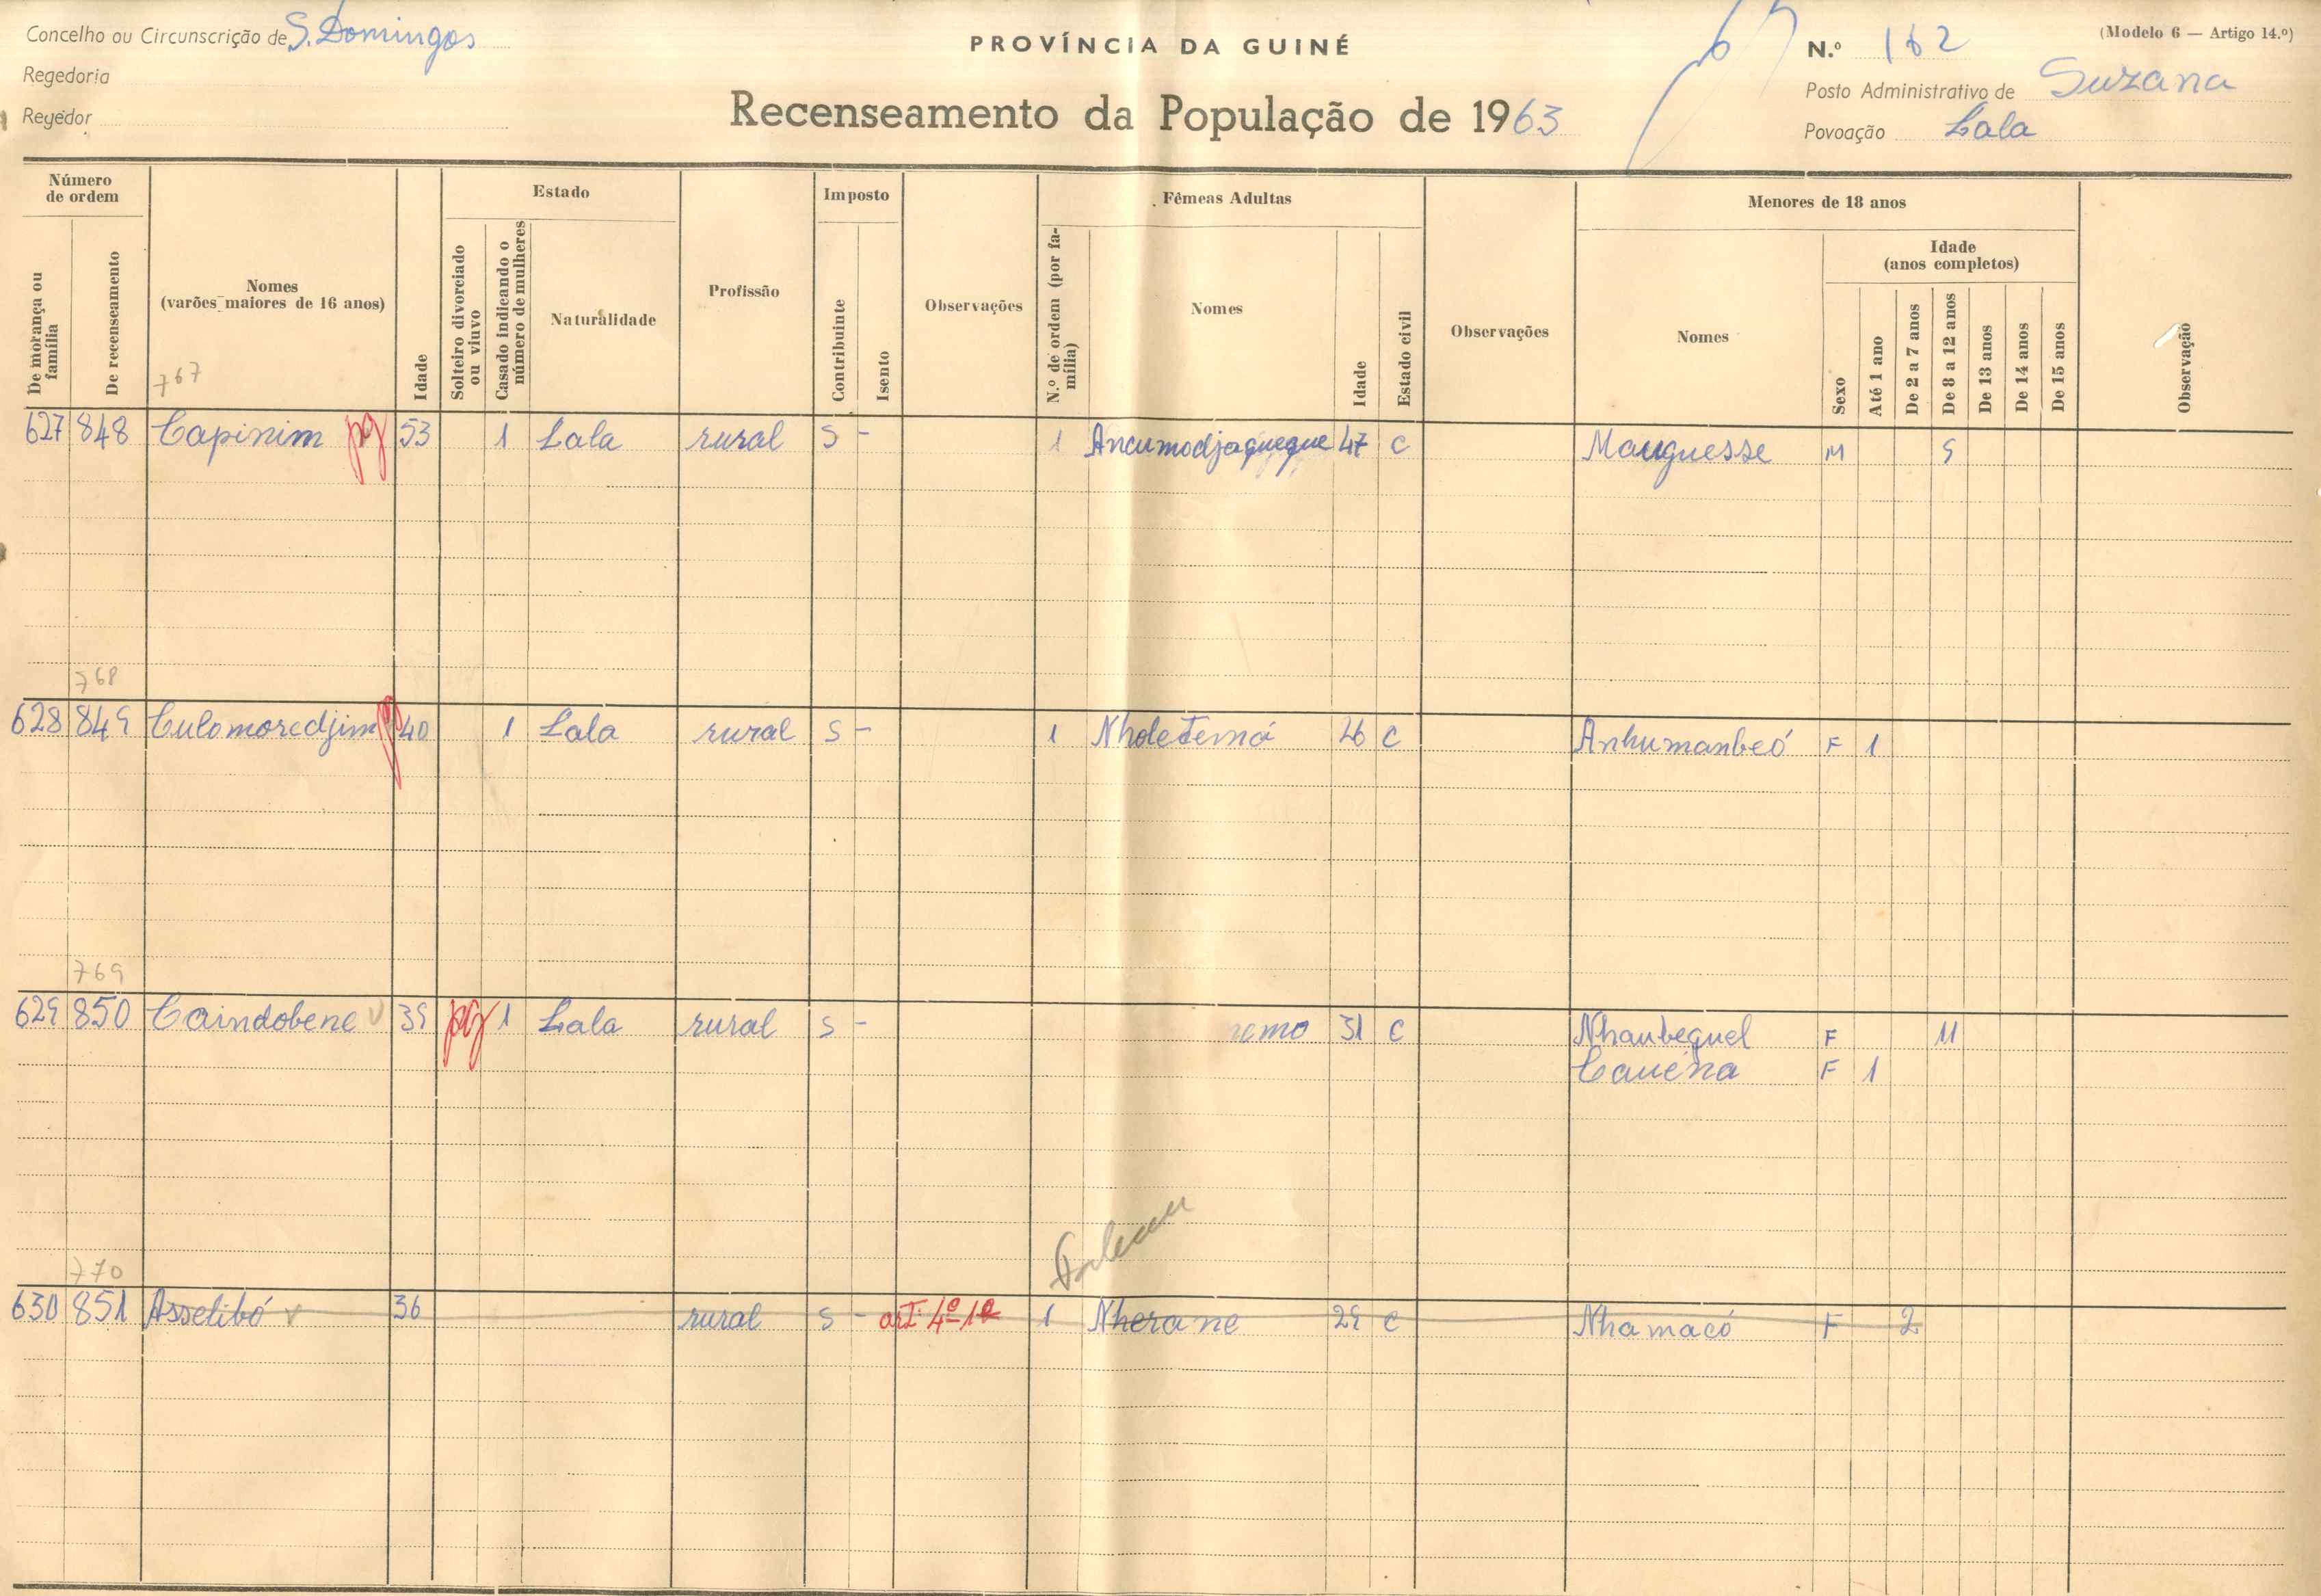 Concelho ou Circunscrição de S. Domingos
Regedoria
Regedor
PROVÍNCIA DA GUINÉ
Recenseamento da População de 1963
(Modelo 6 — Artigo 14.º)
N.º 162
Posto Administrativo de Suzana
Povoação Lala
Número de ordem
De morança ou família
De recenseamento
Nomes
(varões maiores de 16 anos)
Idade
Estado
Solteiro divorciado ou viuvo
Casado indicando o número de mulheres
Naturalidade
Profissão
Imposto
Contribuinte
Isento
Observações
Fêmeas Adultas
N.º de ordem (por família)
Nomes
Idade
Estado civil
Observações
Menores de 18 anos
Nomes
Sexo
Idade
(anos completos)
Até 1 ano
De 2 a 7 anos
De 8 a 12 anos
De 13 anos
De 14 anos
De 15 anos
Observação
767
627 848 Capinim pg 53 1 Lala rural S - 1 Ancumodjaqueque 47 C Mauguesse M 9
768
628 849 Culomoredjim pg 40 1 Lala rural S - 1 Nholeterná 26 C Anhumanbeó F 1
769
629 850 Caindobene V 39 pg 1 Lala rural S - 31 C Nhaubequel F 11
Cauéna F 1
770
630 851 Asselibó v 36 rural S - art. 4º 1 Nherane 29 C Nhamacó F 2